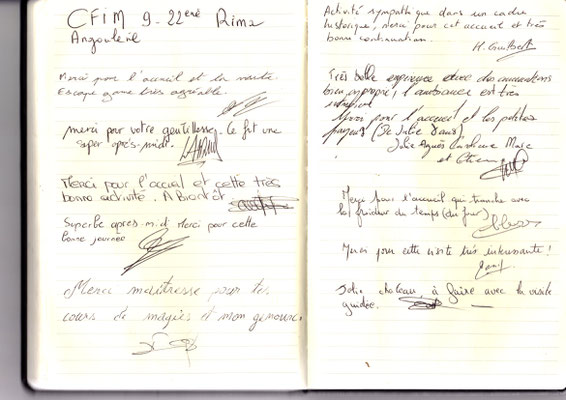 CFIM 9-22ème Rima
Angoulême
Merci pour l'accueil et la visite.
Escape game très agréable.
merci pour votre gentillesse. Ce fut une
super après-midi.
Merci pour l'accueil et cette très
bonne activité. A Brontot
Superbe après-midi Merci pour cette
bonne journée
Merci maîtresse pour tes
cours de magies et mon armoire.
Activité sympathique dans un cadre
historique, merci pour cet accueil et très
bonne continuation.
H. Guilbert
Très belle expérience avec des
bien approprié, l'ambiance est très
pour l'accueil et les petites
(De Julie 8 ans)
Julie Agnès Marc
et
Merci pour l'accueil qui tranche avec
la froideur du temps (du jour)
Merci pour cette visite très intéressante !
Jolie chateau à faire avec la visite
guidée.